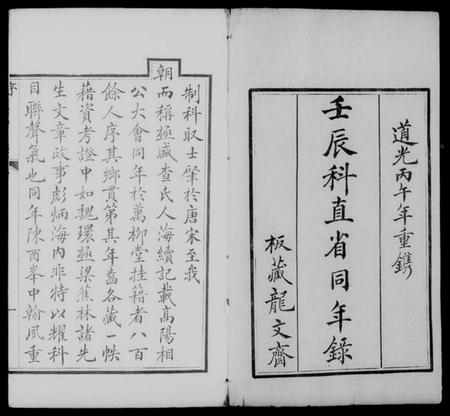 道光丙午年重鐫
壬辰科直省同年錄
板藏龍文齋
制科取士肇於唐宋至我
朝而稱極盛查氏人海續記載高陽相
公大會同年於萬柳堂挂籍者八百
餘人序其鄉貫第其年齒各藏一帙
藉資考證中如魏環極梁蕉林諸先
生文章政事彪炳海內非特以耀科
目聯聲氣也同年陳酉峯中翰夙重
序
一